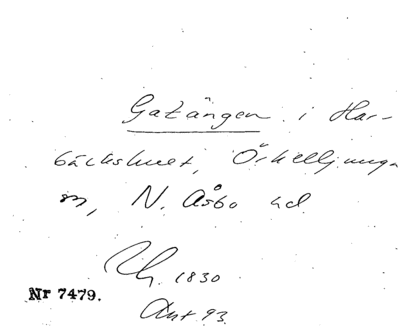 Gatängen i Har-
bäckshult, Örkelljunga
sn, N. Åsbo hd
Rh. 1830
Nr 7479.
Akt 93.